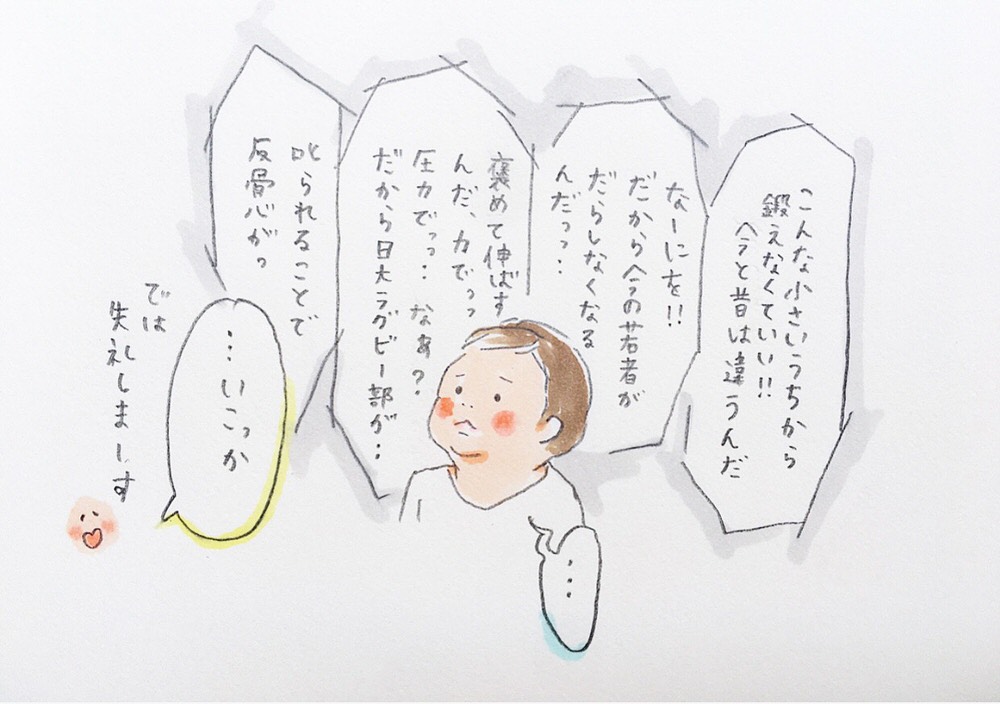 こんな小さいうちから
鍛えなくていい!!
今と昔は違うんだ
なーにを!!
だから今の若者が
だらしなくなる
んだっっ・・
褒めて伸ばす
んだ、力でっっ
圧力でっっ・・なぁ?
だから日大ラグビー部が・・・
叱られることで
反骨心がっ
・・・
・・・いこっか
では
失礼しまーす